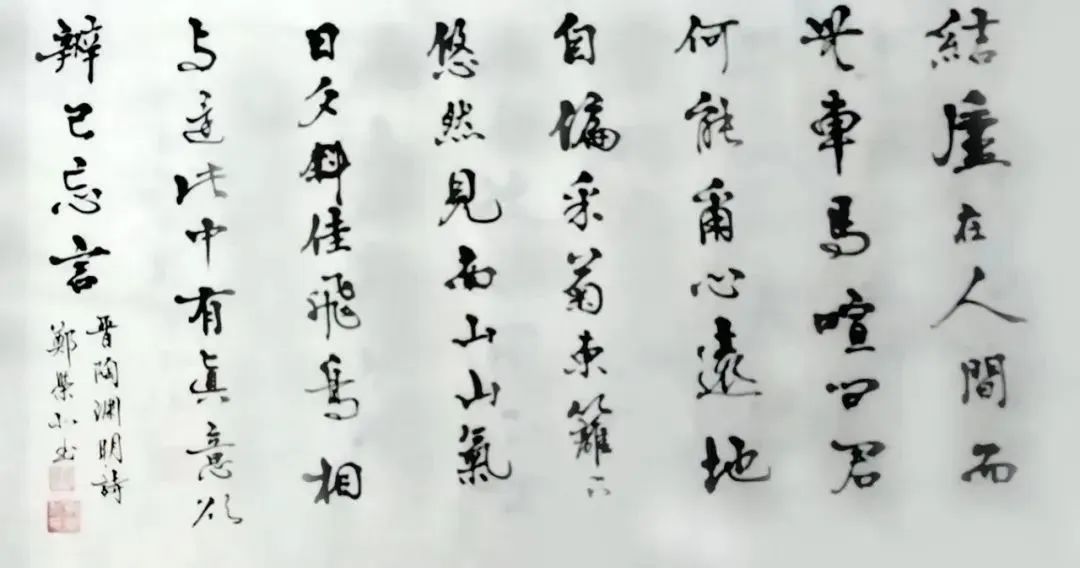 結廬在人間而
無車馬喧問君
何能爾心遠地
自偏采菊東籬下
悠然見南山山氣
日夕斜佳飛鳥相
与還此中有眞意欲
辨已忘言
晋陶渊明詩
鄭书